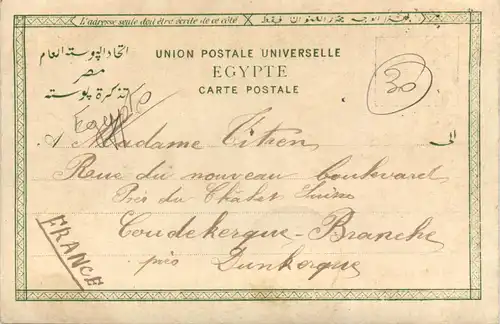 L'adresse seule doit être écrite de ce côté
UNION POSTALE UNIVERSELLE
EGYPTE
CARTE POSTALE
اتحاد البوستة العام
مصر
تذكرة بوسته
30
Egypte
A Madame Titren
الى
Rue du nouveau boulevard
Près du Châlet Suisse
Coudekerque-Branche
près Dunkerque
FRANCE